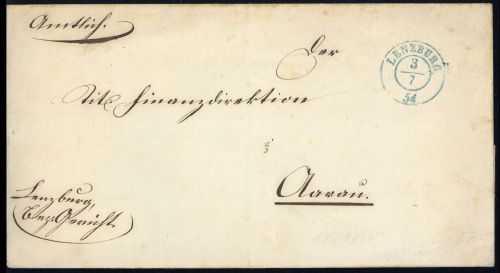 Amtlich.
Der
LENZBURG
3
7
54
Tit. Finanzdirektion
Aarau.
Lenzburg,
Bez. Gericht.